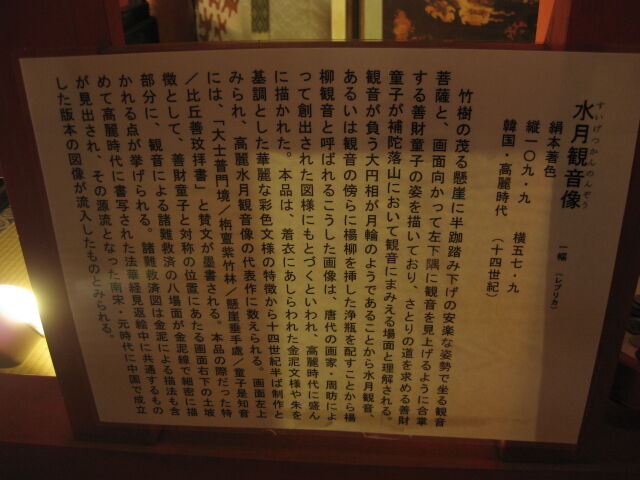 すいげつかんのんぞう
水月観音像
一幅（レプリカ）
絹本著色
縦一〇九・九　横五七・九
韓国・高麗時代　（十四世紀）
竹樹の茂る懸崖に半跏踏み下げの安楽な姿勢で坐る観音
菩薩と、画面向かって左下隅に観音を見上げるように合掌
する善財童子の姿を描いており、さとりの道を求める善財
童子が補陀落山において観音にまみえる場面と理解される。
観音が負う大円相が月輪のようであることから水月観音、
あるいは観音の傍らに楊柳を挿した浄瓶を配すことから楊
柳観音と呼ばれるこうした画像は、唐代の画家・周昉によ
って創出された図様にもとづくといわれ、高麗時代に盛ん
に描かれた。本品は、着衣にあしらわれた金泥文様や朱を
基調とした華麗な彩色文様の特徴から十四世紀半ば制作と
みられ、高麗水月観音像の代表作に数えられる。画面左上
には、「大士普門境／栴亶紫竹林／懸崖垂手處／童子是知音
／比丘善玟拝書」と賛文が墨書される。本品の際だった特
徴として、善財童子と対称の位置にあたる画面右下の土坡
部分に、観音による諸難救済の八場面が金泥線で細密に描
かれる点が挙げられる。諸難救済図は金泥による描法も含
めて高麗時代に書写された法華経見返絵中に共通するもの
が見出され、その源流となった南宋・元時代に中国で成立
した版本の図像が流入したものとみられる。